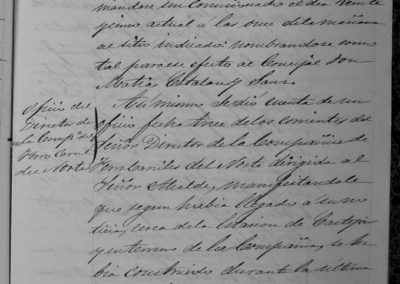 mandase un comisionado el dia veinte
y cinco actual a las once de la mañana
al sitio indicado: nombrandose como
tal para ese efecto al Concejal Don
Matias Catalan y Sanz.
Oficio del
Director de
la Compª de
Ferro Carriles
del Norte
Asi mismo se dió cuenta de un
oficio fecha trece de los corrientes del
Señor Director de la Compañia de
Ferro Carriles del Norte dirigida al
Señor Alcalde, manifestandole
que segun habia llegado a su no
ticia, cerca de la Estacion de Castejon
y en terreno de la Compañia, se ha
bia construido durante la ultima